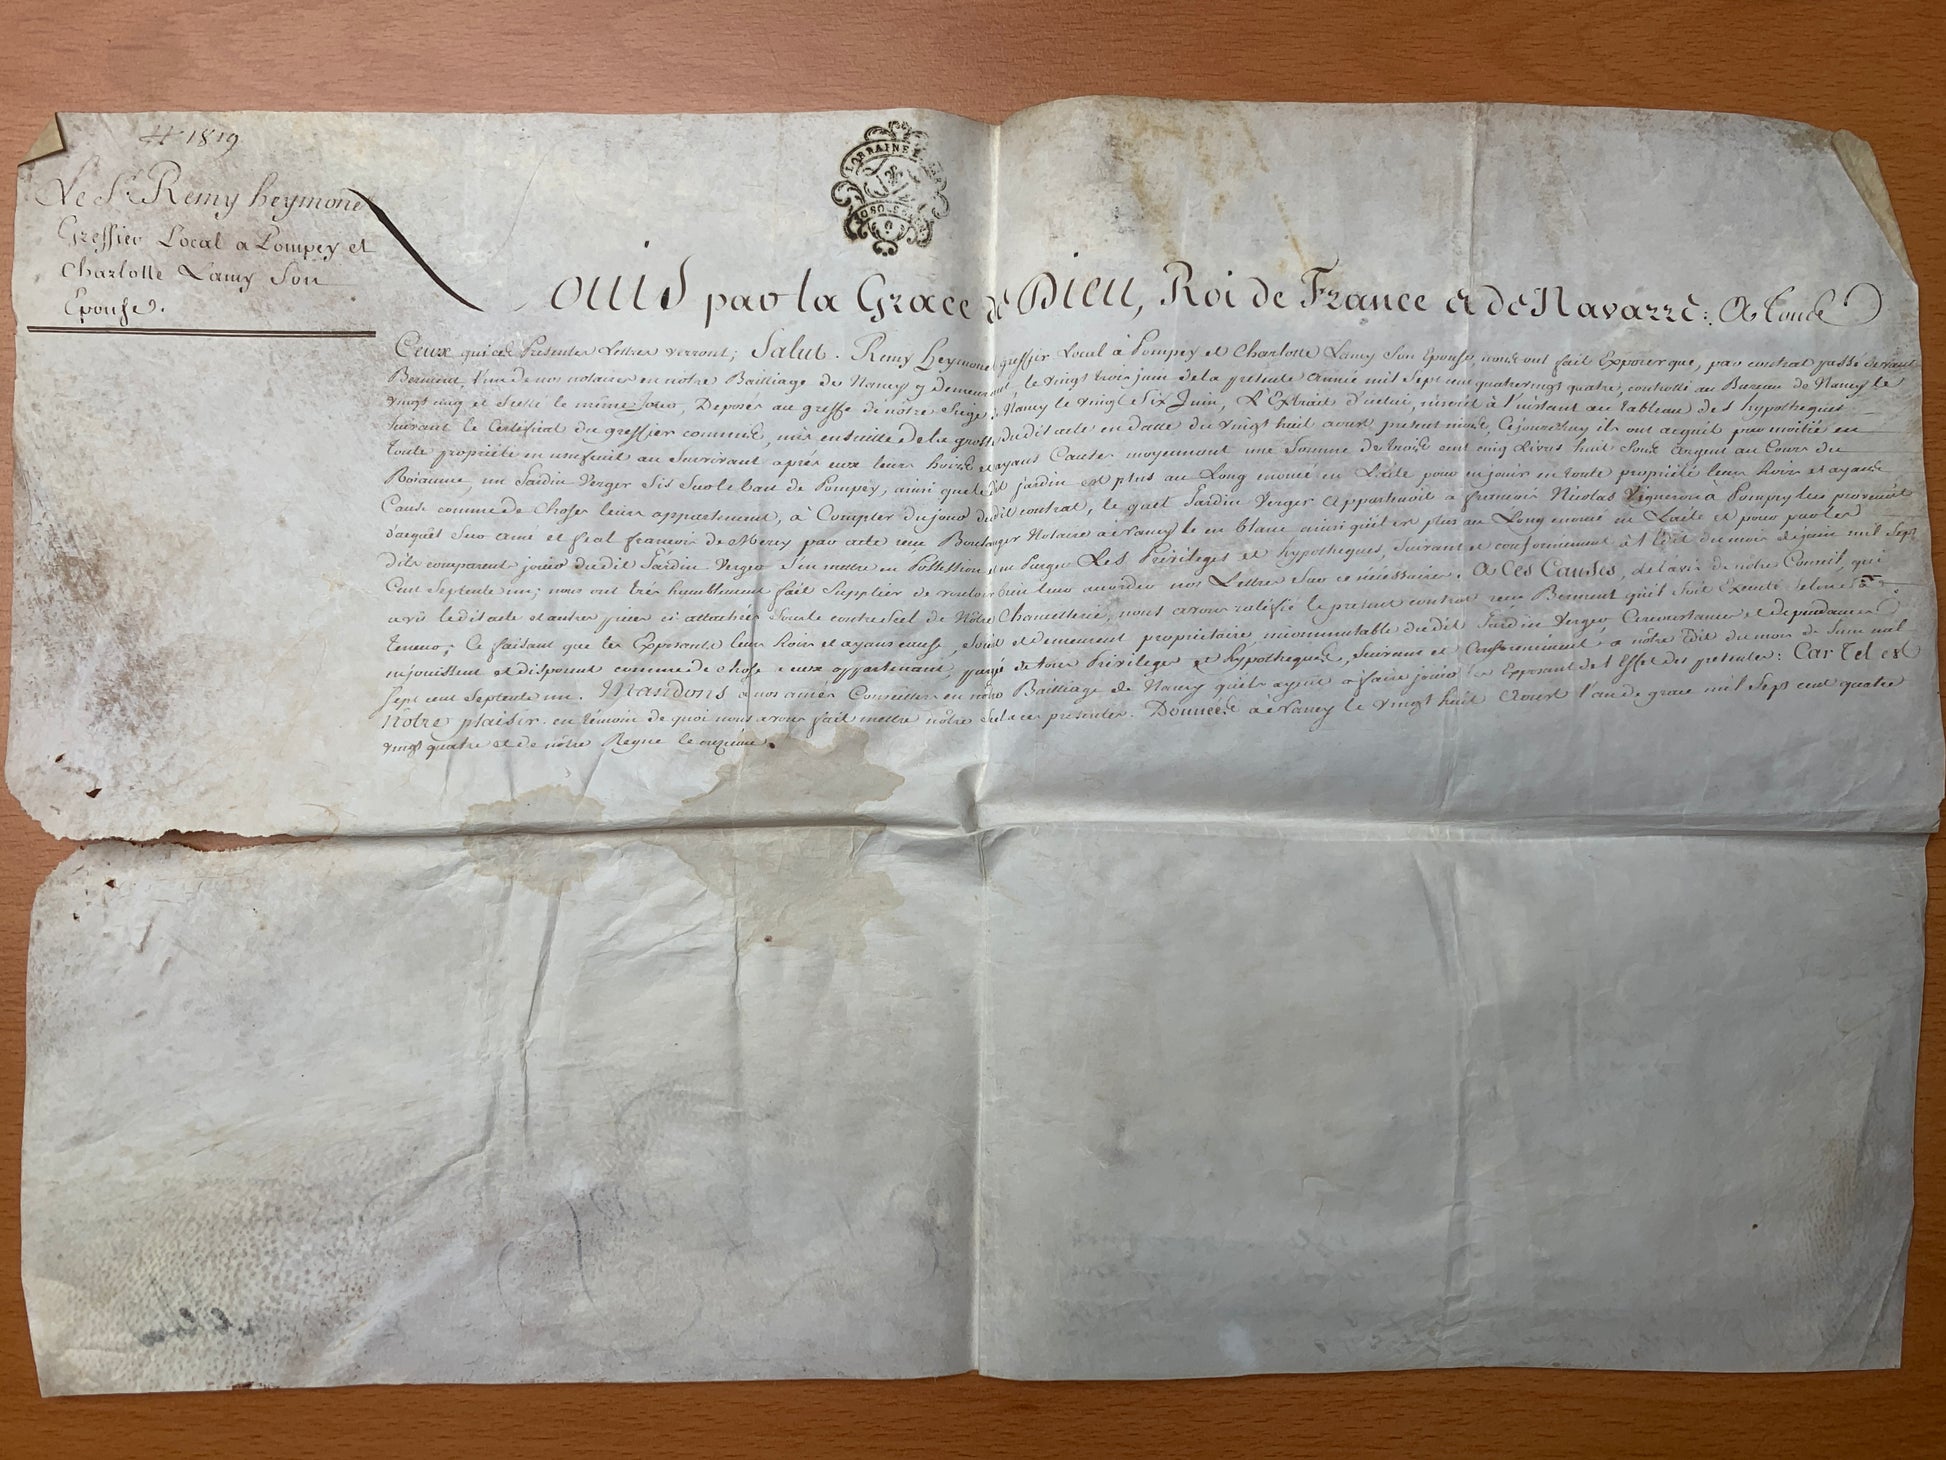 # 1819
Le Sr. Remy heymone
Greffier Local a Pompey et
Charlotte Lamy Son
Epouse.
LORRAINE
Louis par la Grace de Dieu, Roi de France et de Navarre: A tous
Ceux qui ces Presentes Lettres verront; Salut. Remy heymone greffier Local à Pompey et Charlotte Lamy Son Epouse, nous ont fait Exposer que, par contrat passé devant
Bernent l'un de nos notaires en nôtre Bailliage de Nancy y demeurant le vingt trois juin de la présente Année mil Sept cent quatre vingt quatre, controllé au Bureau de Nancy le
vingt cinq et Scellé le même Jour, Deposés au greffe de nôtre Siège à Nancy le vingt Six Juin, L'Extrait d'icelui, inseré à l'instant au tableau des hypotheques
Suivant le Certificat du greffier commis, mis ensuitte de la grosse dudit acte en datte du vingt huit aoust présent mois, Cejourdhuy ils ont acquit par moitié en
toute propriété en usufruit au Survivant aprés eux leurs hoirs et ayans Causes moyennant une Somme de trois cent cinq Livres huit Sous argent au Cours du
Roiaume, un Jardin Verger Sis Sur le ban de Pompey, ainsi que ledit jardin est plus au Long en Laite pour en jouir en toute propriété leurs hoirs et ayans
Cause comme de Choses leurs appartenant, à Compter du jour dudit contrat, le quel Jardin Verger Appartenoit à francois Nicolas Vigneron à Pompey lui provenant
d'acquêt Sur Amé et feal francois de Mercy par acte reçu Boulanger Notaire à Nancy le en blanc ainsi qu'il est plus au Long en Laite et pour par les
dits comparent jouir dudit Jardin Verger S'en mettre en Possession en Purger Les Privileges et hypotheques, Suivant et conformement à l'Edit du mois de juin mil Sept
Cent Septente un; nous ont trés humblement fait Supplier de vouloir bien leur accorder nos Lettres Sur ce nécessaires. A Ces Causes, de l'avis de nôtre Conseil, qui
a vû ledit acte et autres pieces ci attachés Sous le contre Scel de Nôtre Chancellerie, nous avons ratifié le présent contrat reçu Bernent qu'il Soit Executé Selon Sa
teneur; Ce faisant que les Exposants leurs hoirs et ayans cause, Soient et demeurent proprietaire incommutable dudit Jardin Verger Circonstances et dependances
en jouissent et disposent comme de chose à eux appartenant, purgé de tous Privileges et hypotheques, Suivant et Conformément à nôtre Edit du mois de Juin mil
Sept cent Septente un. Mandons à nos amés Conseillers en nôtre Bailliage de Nancy qu'ils ayent a faire jouir les Exposant de l'Effet des presentes: Car tel est
nôtre plaisir. en témoin de quoi nous avons fait mettre nôtre Scel à ces presentes. Données à Nancy le vingt huit Aoust l'an de grace mil Sept cent quatre
vingt quatre et de nôtre Regne le onzieme.